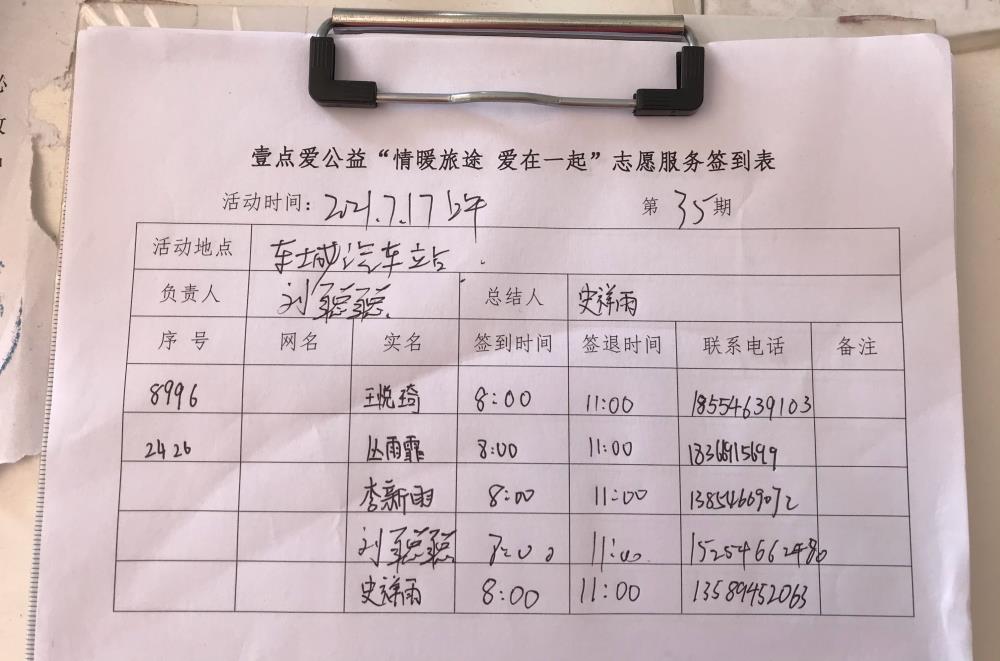 壹点爱公益“情暖旅途 爱在一起”志愿服务签到表
活动时间：2021.7.17 上午 第 35 期
活动地点 车城汽车站
负责人 刘聪聪 总结人 史祥雨
序号 网名 实名 签到时间 签退时间 联系电话 备注
8996 王悦琦 8:00 11:00 18554639103
2426 丛雨霏 8:00 11:00
李新雨 8:00 11:00 13854669072
刘聪聪 8:00 11:00 15254662480
史祥雨 8:00 11:00 13589452063